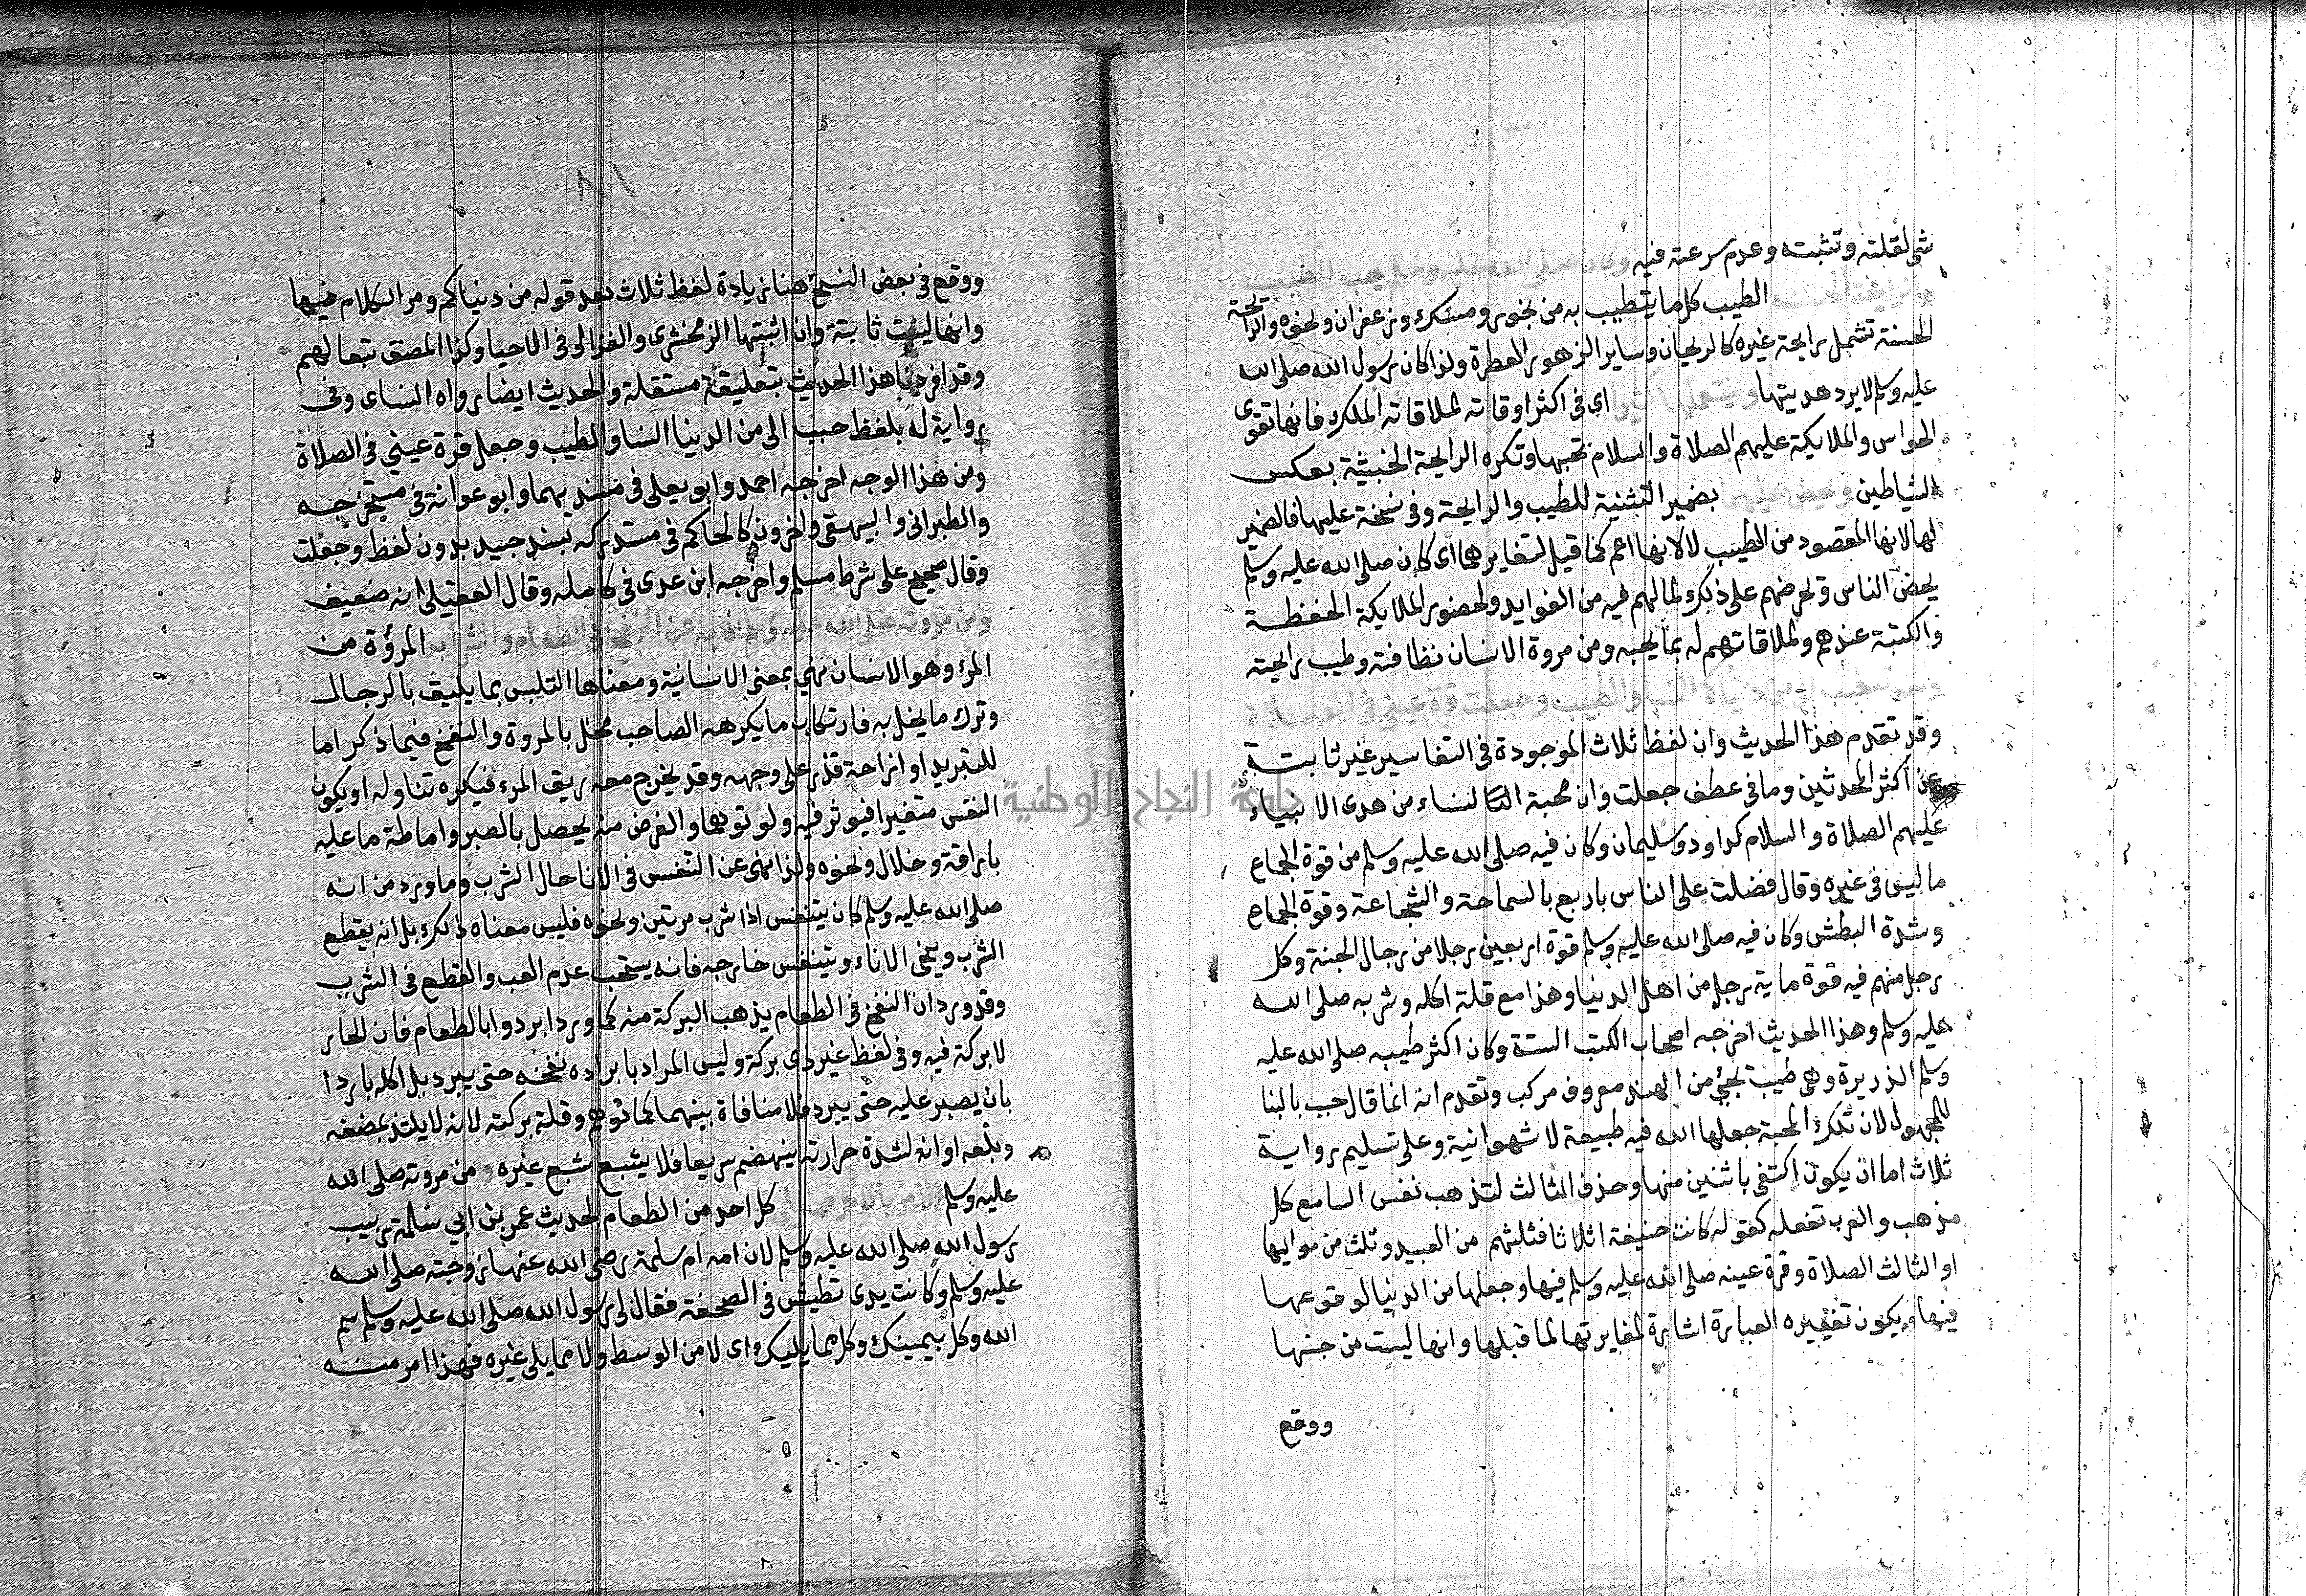 شى لقلته وتثبته وعدم سرعته فيه وكان صلى الله عليه وسلم يحب الطيب
والرايحة الحسنة الطيب كل ما يتطيب به من بخور ومسك وزعفران ونحوه والرايحة
الحسنة تشمل رايحة غيره كالريحان وساير الزهور العطرة ولذا كان رسول الله صلى الله
عليه وسلم لا يرد هديتها ويستعملها كثيرا اى فى اكثر اوقاته لملاقاته الملك فانها تقوى
الحواس والملايكة عليهم الصلاة والسلام تحبها وتكره الرايحة الخبيثة بعكس
الشياطين ويحض عليهما بضمير التثنية للطيب والرايحة وفى نسخة عليها فالضمير
لها لانها المقصود من الطيب لا لانها اعم كما قيل لتغايرهما اى كان صلى الله عليه وسلم
يحض الناس وتحرضهم على ذلك لما لهم فيه من الفوايد ولحضور الملايكة الحفظة
والكتبة عندهم ولملاقاتهم له بما يحبه ومن مروة الانسان نظافته وطيب رايحته
حبب الى من دنياكم النسا والطيب وجعلت قرة عينى فى الصلاة
وقد تقدم هذا الحديث وان لفظ ثلاث الموجودة فى التفاسير غير ثابتة
عن اكثر المحدثين وما فى عطف جعلت وان محبة النساء من هدى الانبياء
عليهم الصلاة والسلام كداود وسليمان وكان فيه صلى الله عليه وسلم من قوة الجماع
ما ليس فى غيره وقال فضلت على الناس باربع بالسماحة والشجاعة وقوة الجماع
وشدة البطش وكان فيه صلى الله عليه وسلم قوة اربعين رجلا من رجال الجنة وكل
رجل منهم فيه قوة ماية رجل من اهل الدنيا وهذا مع قلة اكله وشربه صلى الله
عليه وسلم وهذا الحديث اخرجه اصحاب الكتب الستة وكان اكثر طيبه صلى الله عليه
وسلم الذريرة وهى طيب يجئ من الهند معروف مركب وتقدم انه انما قال حبب بالبنا
للمجهول لان تلك المحبة جعلها الله فيه طبيعة لا شهوانية وعلى تسليم رواية
ثلاث اما ان يكون اكتفى باثنين منها وحذف الثالث لتذهب نفس السامع كل
مذهب والعرب تفعله كقوله كانت حنيفة اثلاثا فثلثهم من العبيد وثلث من مواليها
او الثالث الصلاة وقرة عينه صلى الله عليه وسلم فيها وجعلها من الدنيا لوقوعها
فيها ويكون تغييره العبارة اشارة لمغايرتها لما قبلها وانها ليست من جنسها
ووقع
٨١
ووقع فى بعض النسخ هنا زيادة لفظ ثلاث بعد قوله من دنياكم ومر الكلام فيها
وانها ليست ثابتة وان اثبتها الزمخشرى والغزالى فى الاحيا وكذا المصنف تبعا لهم
وقد افردنا هذا الحديث بتعليقة مستقلة والحديث ايضا رواه النساى وفى
رواية له بلفظ حبب الى من الدنيا النسا والطيب وجعل قرة عينى فى الصلاة
ومن هذا الوجه اخرجه احمد وابو يعلى فى مسنديهما وابو عوانة فى مستخرجه
والطبرانى والبيهقى واخرون كالحاكم فى مستدركه بسند جيد بدون لفظ وجعلت
وقال صحيح على شرط مسلم واخرجه ابن عدى فى كامله وقال العقيلى انه ضعيف
ومن مروته صلى الله عليه وسلم نهيه عن النفخ فى الطعام والشراب المرؤة من
المرء وهو الانسان فهي بمعنى الانسانية ومعناها التلبس بما يليق بالرجال
وترك ما يخل به فارتكاب ما يكرهه الصاحب مخل بالمروة والنفخ فيما ذكر اما
للتبريد او ازاحة قذر على وجهه وقد يخرج معه ريق المرء فيكره تناوله او يكون
النفس متغيرا فيوثر فيه ولو توهما والغرض منه يحصل بالصبر واماطة ما عليه
باراقة وخلال ونحوه ولذا نهى عن التنفس فى الانا حال الشرب وما ورد من انه
صلى الله عليه وسلم كان يتنفس اذا شرب مرتين ونحوه فليس معناه ذلك بل انه يقطع
الشرب وينحى الاناء ويتنفس خارجه فانه يستحب عدم العب والقطع فى الشرب
وقد ورد ان النفخ فى الطعام يذهب البركة منه كما ورد ابردوا بالطعام فان الحار
لا بركة فيه وفى لفظ غير ذى بركة وليس المراد بابراده نفخه حتى يبرد بل اكله باردا
بان يصبر عليه حتى يبرد فلا منافاة بينهما كما توهم وقلة بركته لانه لا يلتذ بمضغه
وبلعه او انه لشدة حرارته ينهضم سريعا فلا يشبع شبع غيره ومن مروته صلى الله
عليه وسلم الامر بالاكل مما يلى كل احد من الطعام لحديث عمر بن ابي سلمة ربيب
رسول الله صلى الله عليه وسلم لان امه ام سلمة رضى الله عنها زوجته صلى الله
عليه وسلم وكانت يدى تطيش فى الصحفة فقال لى رسول الله صلى الله عليه وسلم سم
الله وكل بيمينك وكل مما يليك اى لا من الوسط ولا مما يلى غيره فهذا امر منه
جامعة النجاح الوطنية